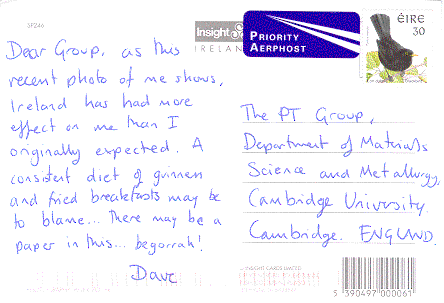 SPZ46
Insight
IRELAND
PRIORITY
AERPHOST
ÉIRE
30
Dear Group, as this
recent photo of me shows,
Ireland has had more
effect on me than I
originally expected. A
consistent diet of guinness
and fried breakfasts may be
to blame... There may be a
paper in this... begorrah!
Dave
The PT Group,
Department of Materials
Science and Metallurgy,
Cambridge University.
Cambridge. ENGLAND.
INSIGHT CARDS LIMITED
5 390497 000061